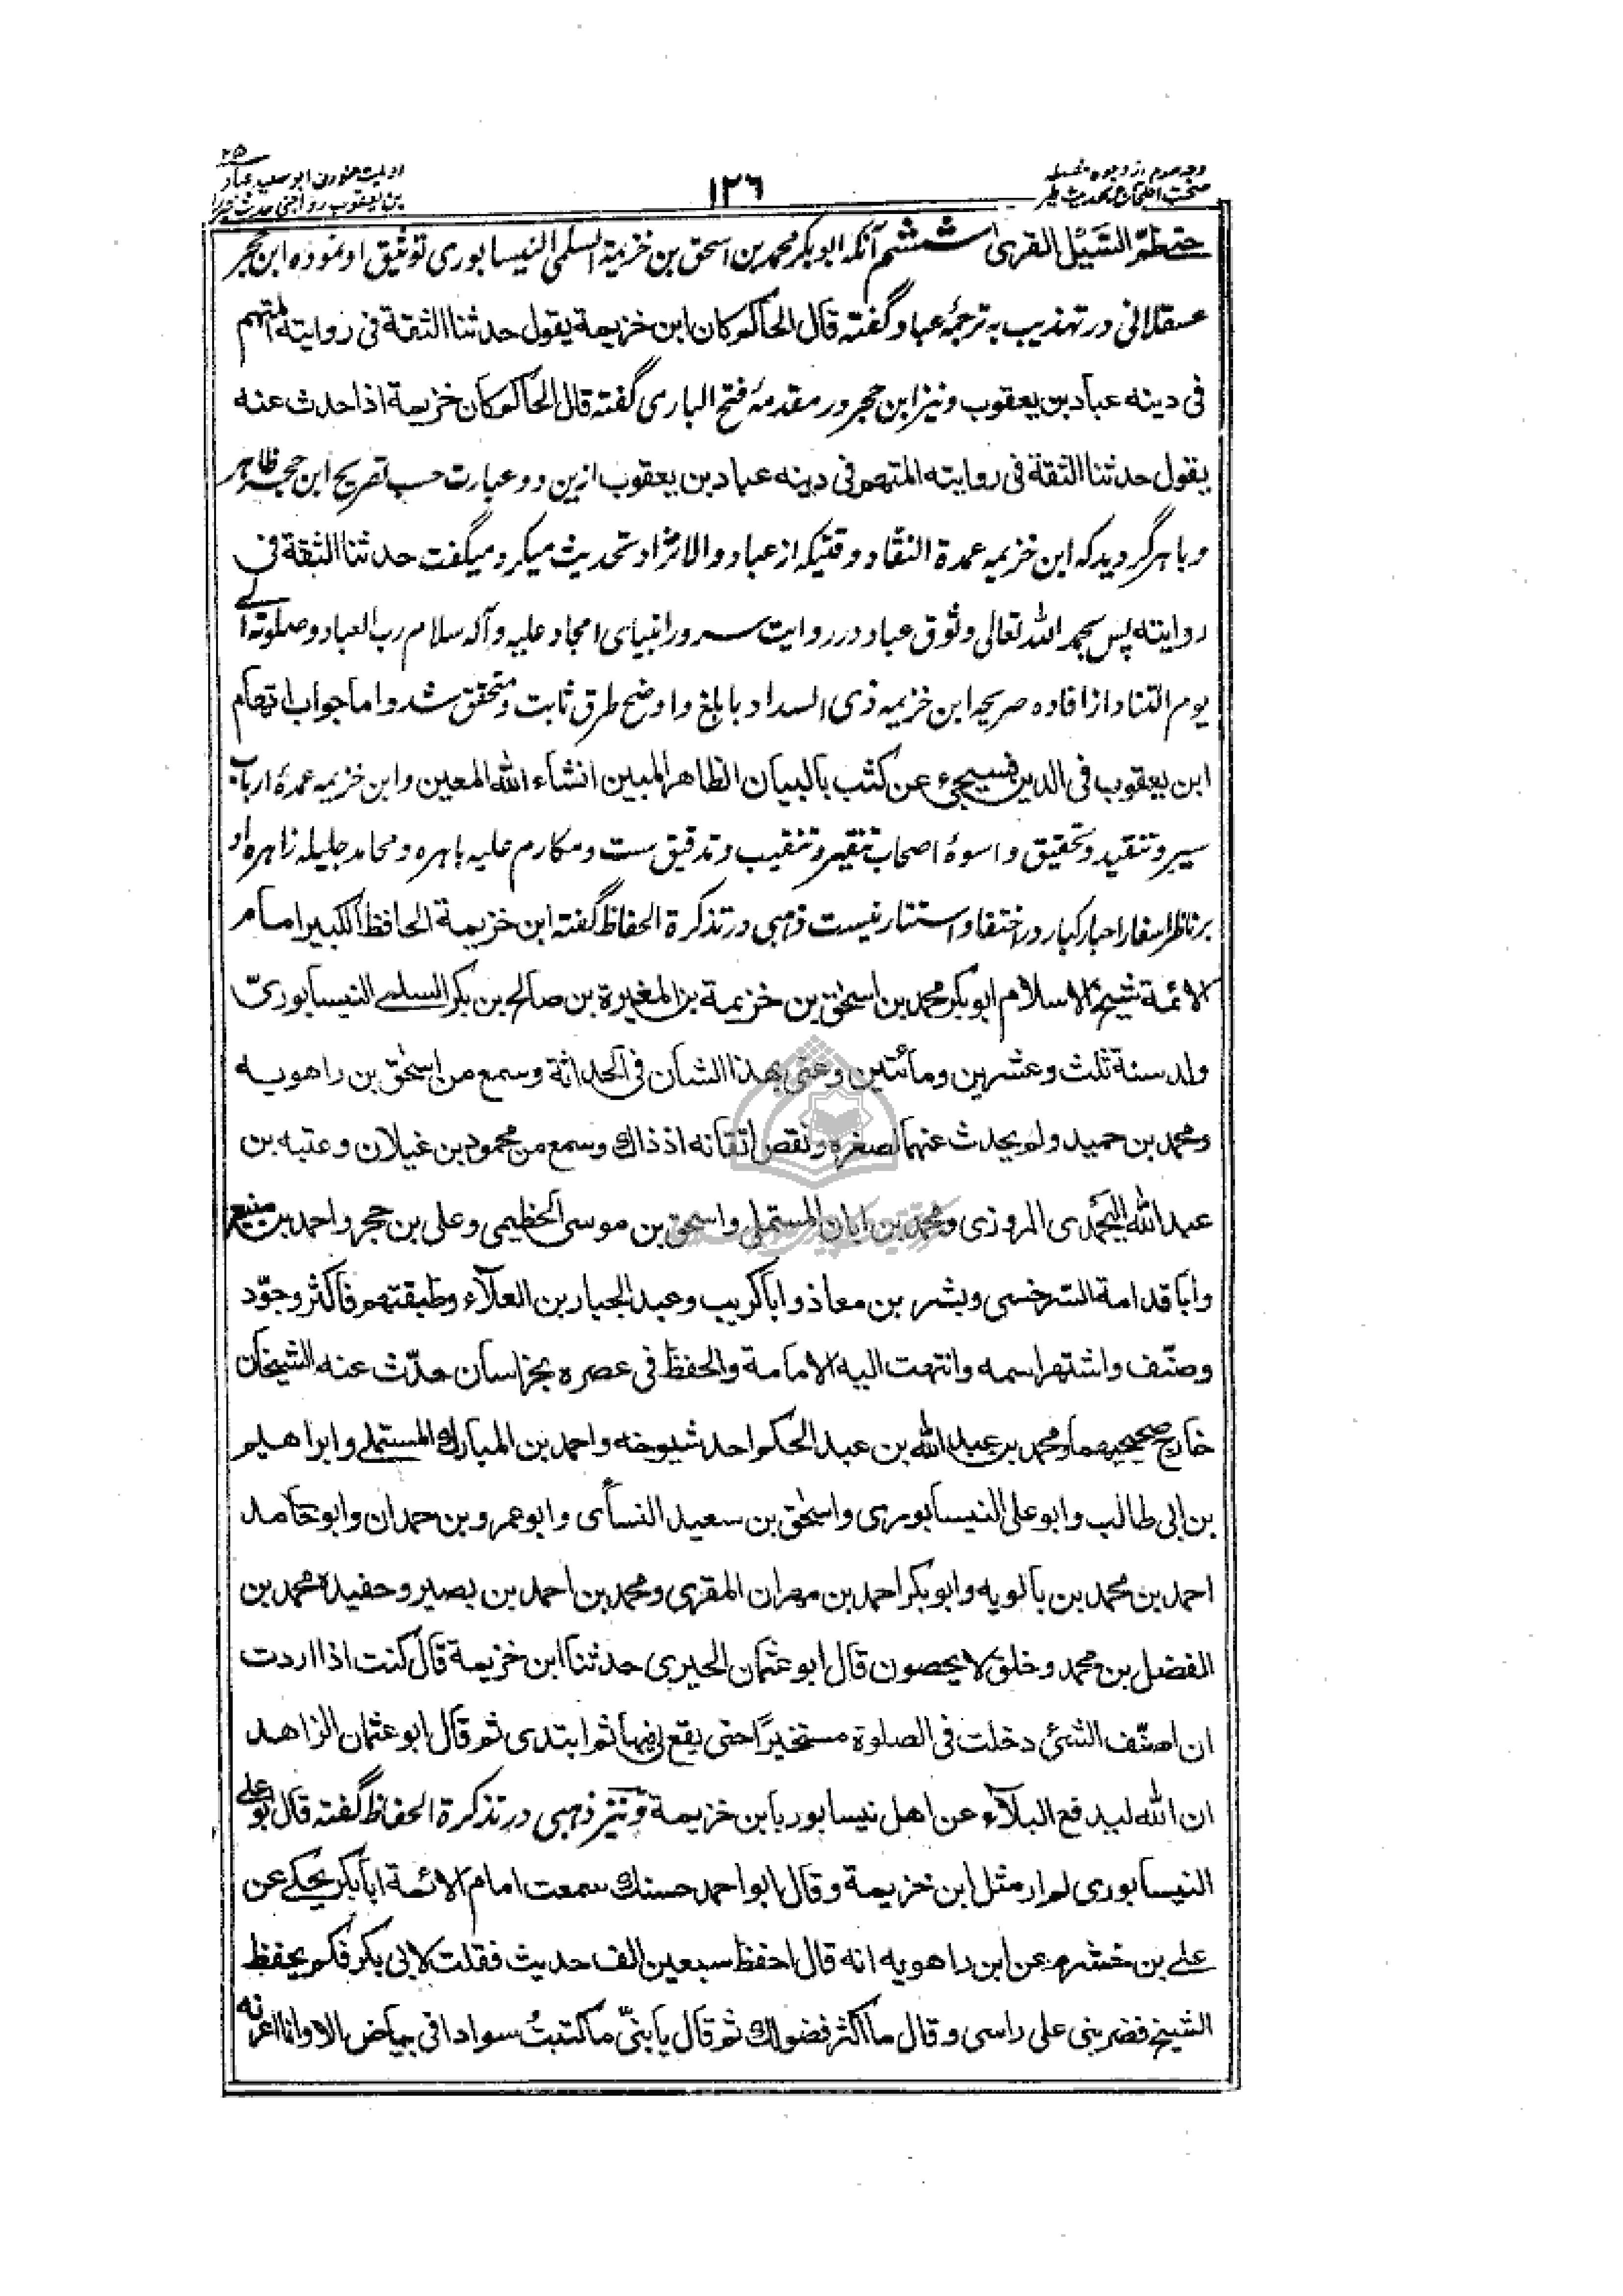 وجه سوم از وجوه خمسه
صحت احتجاج بحدیث طیر
١٢٦
٢٥
بن یعقوب رواجنی حدیث طیر را
حتى طمّ السَّيْل القرى ششم آنکه ابوبکر محمد بن اسحق بن خزیمة السلمی النیسابوری توثیق او نموده ابن حجر
عسقلانی در تهذیب به ترجمهٔ عباد گفته قال الحاکم کان ابن خزيمة يقول حدثنا الثقة فى روايته المتهم
فى دينه عباد بن يعقوب و نیز ابن حجر در مقدمهٔ فتح الباری گفته قال الحاکم کان خزيمة اذا حدث عنه
يقول حدثنا الثقة فى روايته المتهم فى دينه عباد بن يعقوب ازین دو عبارت حسب تصریح ابن حجر ظاهر
و باهر گردید که ابن خزیمه عمدة النقاد وقتیکه از عباد والانژاد تحدیث میکرد میگفت حدثنا الثقة فى
روايته پس بحمد الله تعالی وثوق عباد در روایت سرور انبیای امجاد علیه و آله سلام رب العباد وصلوته الے
یوم التناد از افاده صریحه ابن خزیمه ذی السداد بابلغ و اوضح طرق ثابت و متحقق شد و اما جواب اتهام
ابن یعقوب فی الدین فسیجیٔ عن کثب بالبیان الظاهر المبین انشاء الله المعین و ابن خزیمه عمدهٔ ارباب
سیر و تنقید و تحقیق و اسوهٔ اصحاب تنقیر و تنقیب و تدقیق ست و مکارم علیه باهره و محامد جلیله زاهره او
بر ناظر اسفار احبار کبار در اختفا و استتار نیست ذهبی در تذکرة الحفاظ گفته ابن خزيمة الحافظ الكبير امام
الائمة شيخ الاسلام ابو بكر محمد بن اسحٰق بن خزيمة بن المغيرة بن صالح بن بكر السلمے النيسابوریّ
ولد سنة ثلث وعشرين ومائتين وعنى بهذا الشأن فى الحداثة وسمع من اسحٰق بن راهويه
ومحمد بن حميد ولم يحدث عنهما لصغره ونقص اتقانه اذ ذاك وسمع من محمود بن غيلان وعتبه بن
عبد الله اليحمدى المروزى ومحمد بن ابان المستملى واسحق بن موسى الخطيمى وعلى بن حجر واحمد بن منيع
وابا قدامة السرخسى وبشر بن معاذ وابا كريب وعبد الجبار بن العلآء وطبقتهم فاكثر وجوّد
وصنّف واشتهر اسمه وانتهت اليه الامامة والحفظ فى عصره بخراسان حدّث عنه الشيخان
خارج صحيحيهما ومحمد بن عبد الله بن عبد الحكم احد شيوخه واحمد بن المبارك المستملے وابراهيم
بن ابى طالب وابو على النيسابورى واسحٰق بن سعيد النسأى وابو عمرو بن حمدان وابو حامد
احمد بن محمد بن بالويه وابو بكر احمد بن مهران المقرى ومحمد بن احمد بن بصير وحفيده محمد بن
الفضل بن محمد وخلق لا يحصون قال ابو عثمان الحيرى حدثنا ابن خزيمة قال كنت اذا اردت
ان اصنّف الشئ دخلت فى الصلوة مستخيرًا حتى يقع لى فيها ثم ابتدى ثم قال ابو عثمان الزاهد
ان الله ليدفع البلآء عن اهل نيسابور بابن خزيمة و نیز ذهبی در تذکرة الحفاظ گفته قال ابو على
النيسابورى لم ار مثل ابن خزيمة وقال ابو احمد حسنك سمعت امام الائمة ابا بكر يحكے عن
علے بن خشرم عن ابن راهويه انه قال احفظ سبعين الف حديث فقلت لابى بكر فكم يحفظ
الشيخ فضربنى على راسى وقال ما اكثر فضولك ثم قال يا بنىّ ما كتبتُ سوادا فى بياض الا وانا اعرفه